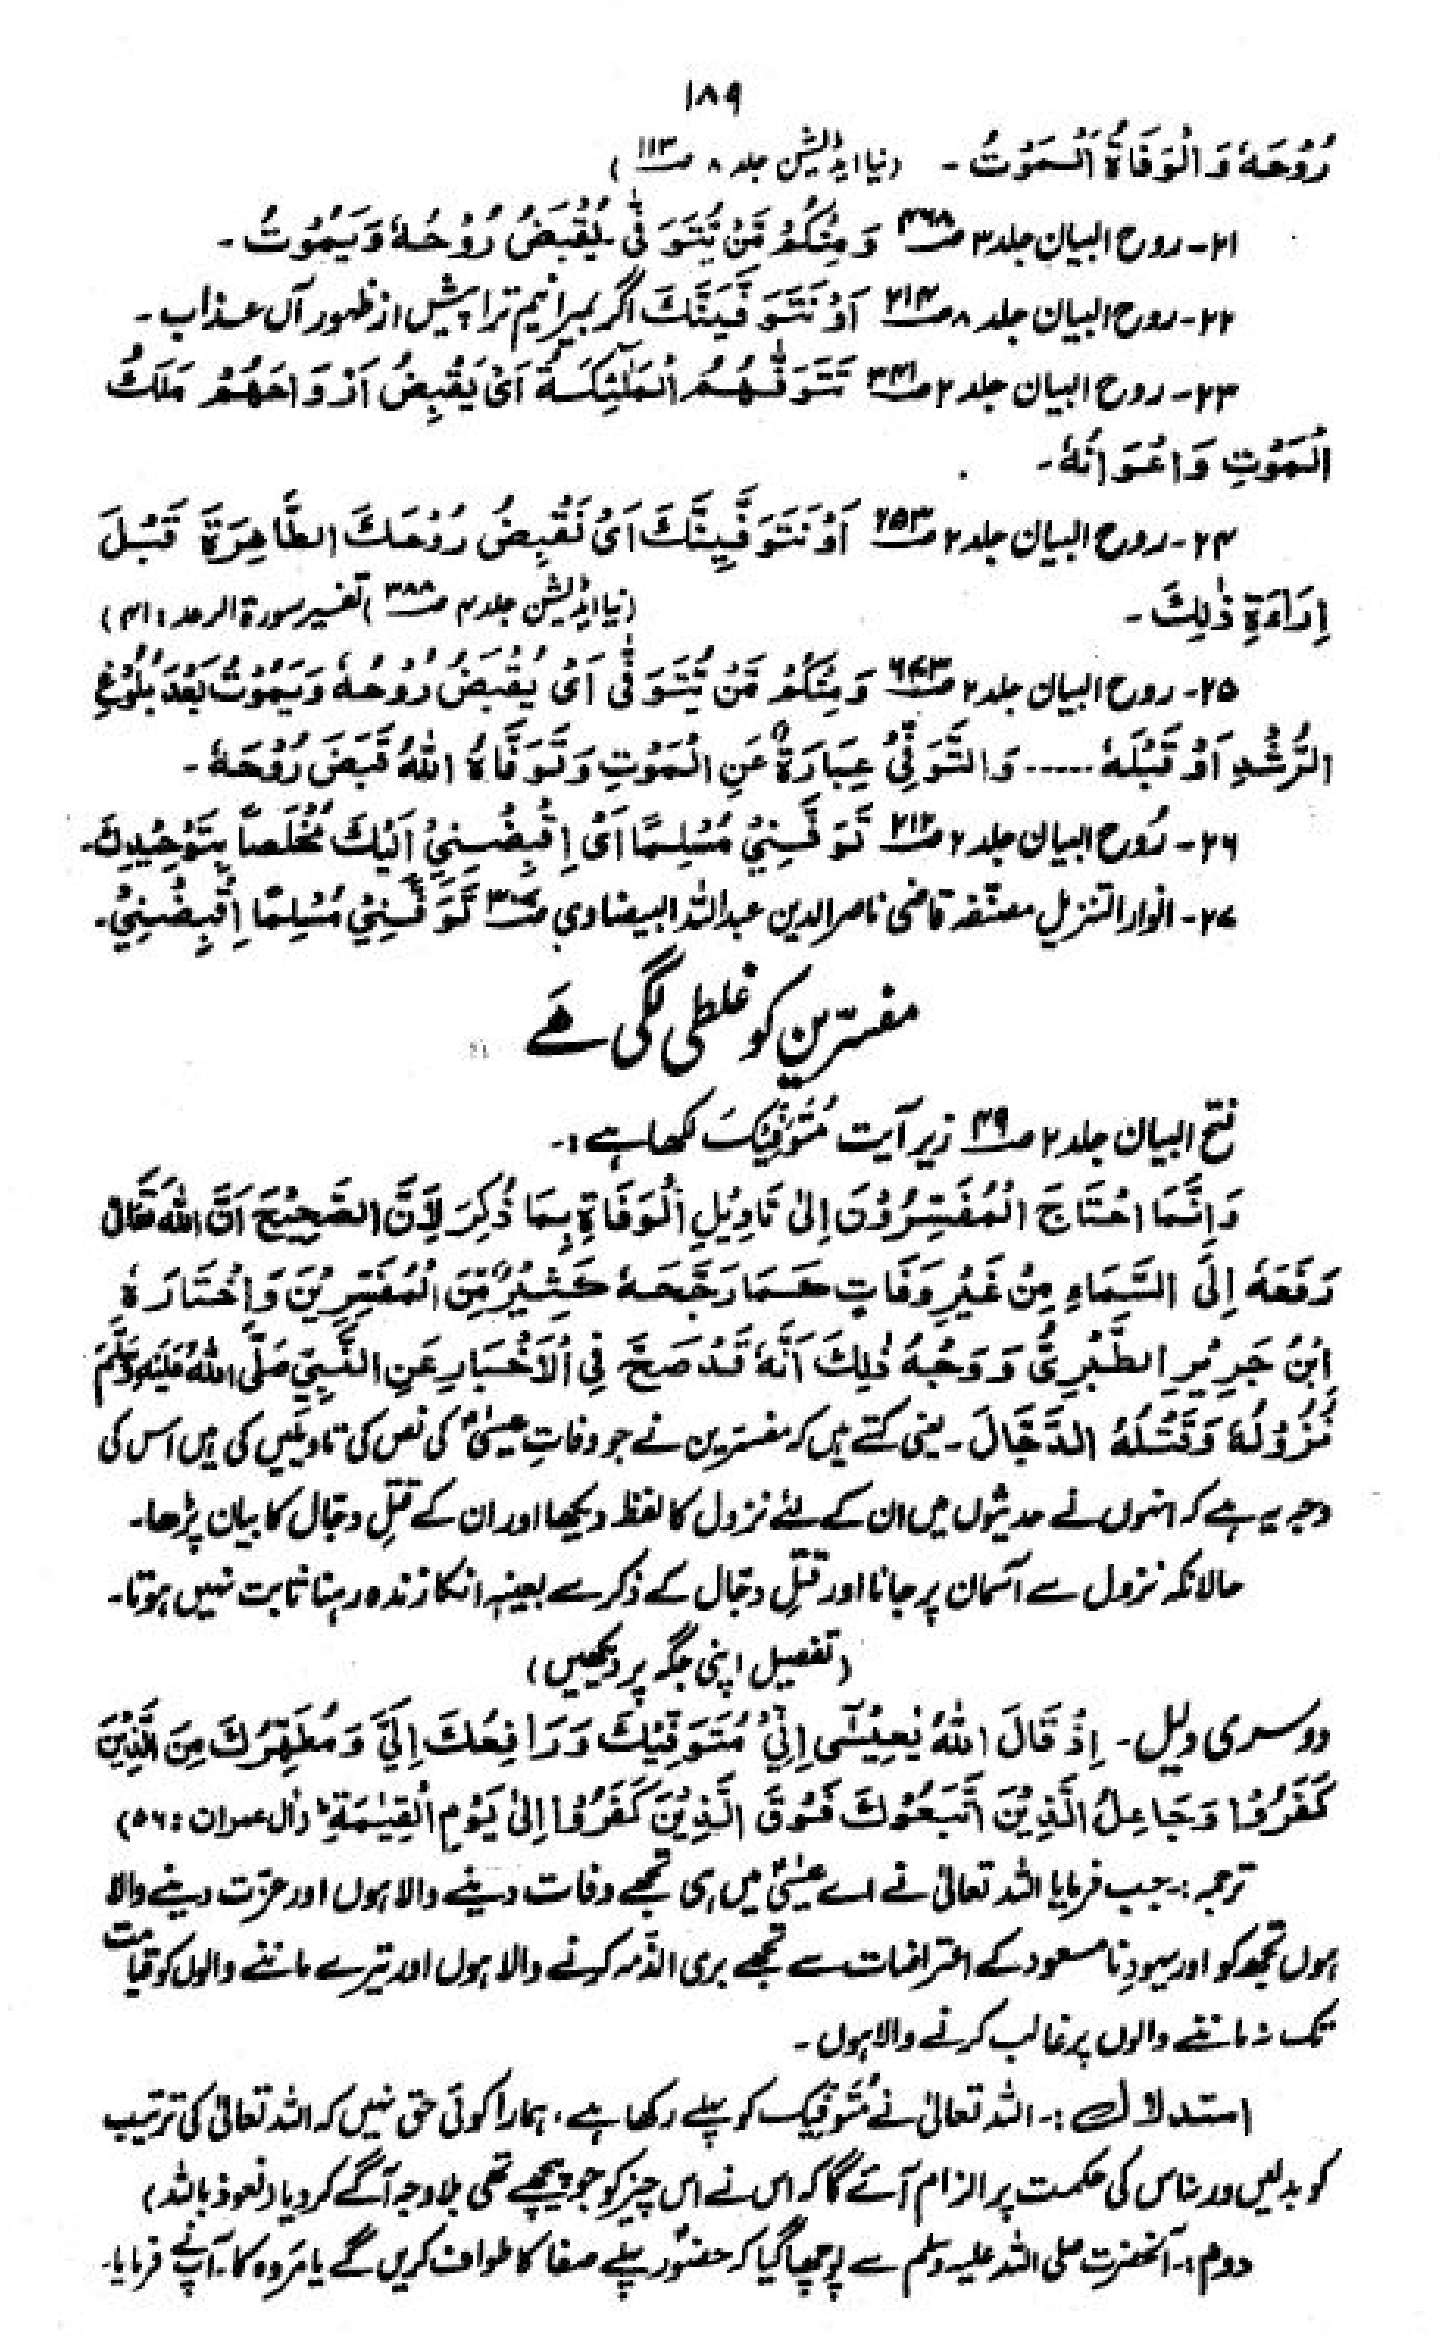 ۱۸۹
رُوْحَهٗ وَالْوَفَاةُ اَلْمَوْتُ ۔ (نیا ایڈیشن جلد ۸ صـ۱۱۳)
۲۱۔ روح البیان جلد ۳ صـ۴۶۸ وَمِنْكُمْ مَّنْ يُّتَوَفّٰى يُقْبَضُ رُوْحُهٗ وَيَمُوْتُ ۔
۲۲۔ روح البیان جلد ۸ صـ۲۱۴ اَوْ نَتَوَفَّيَنَّكَ اگر بمیرانیم ترا پیش از ظہور آں عذاب ۔
۲۳۔ روح البیان جلد ۲ صـ۳۴۱ تَتَوَفّٰهُمُ الْمَلٰٓئِكَةُ اَىْ يَقْبِضُ اَرْوَاحَهُمْ مَلَكُ
الْمَوْتِ وَاعْوَانُهٗ ۔
۲۴۔ روح البیان جلد ۲ صـ۲۵۳ اَوْ نَتَوَفَّيَنَّكَ اَىْ نَقْبِضُ رُوْحَكَ الطَّاهِرَةَ قَبْلَ
اِرَاءَةِ ذٰلِكَ ۔ (نیا ایڈیشن جلد ۴ صـ۳۸۸) تفسیر سورۃ الرعد : ۴۱)
۲۵۔ روح البیان جلد ۲ صـ۶۴۳ وَمِنْكُمْ مَّنْ يُّتَوَفّٰى اَىْ يُقْبَضُ رُوْحُهٗ وَيَمُوْتُ بَعْدَ بُلُوْغِ
الرُّشْدِ اَوْ قَبْلَهٗ ..... وَالتَّوَفِّىْ عِبَارَةٌ عَنِ الْمَوْتِ وَتَوَفَّاهُ اللّٰهُ قَبَضَ رُوْحَهٗ ۔
۲۶۔ رُوح البیان جلد ۲ صـ۲۱۲ تَوَفَّنِىْ مُسْلِمًا اَىْ اِقْبِضْنِىْ اِلَيْكَ مُخْلَصًا بِتَوْحِيْدِكَ ۔
۲۷۔ انوار التنزیل مصنّفہ قاضی ناصر الدین عبداللہ البیضاوی تَوَفَّنِىْ مُسْلِمًا اِقْبِضْنِىْ ۔
مفسّرین کو غلطی لگی ہے
فتح البیان جلد ۲ صـ۴۹ زیر آیت مُتَوَفِّيْكَ لکھا ہے :۔
وَاِنَّمَا احْتَاجَ الْمُفَسِّرُوْنَ اِلٰى تَاوِيْلِ الْوَفَاةِ بِمَا ذُكِرَ لِاَنَّ الصَّحِيْحَ اَنَّ اللّٰهَ تَعَالٰى
رَفَعَهٗ اِلَى السَّمَاءِ مِنْ غَيْرِ وَفَاتٍ كَمَا رَجَّحَهٗ كَثِيْرٌ مِّنَ الْمُفَسِّرِيْنَ وَاخْتَارَهٗ
ابْنُ جَرِيْرِ الطَّبْرِىُّ وَوَجْهُ ذٰلِكَ اَنَّهٗ قَدْ صَحَّ فِى الْاَخْبَارِ عَنِ النَّبِىِّ صَلَّى اللّٰهُ عَلَيْهِ وَسَلَّمَ
نُزُوْلُهٗ وَقَتْلُهُ الدَّجَّالَ ۔ یعنی کہتے ہیں کہ مفسّرین نے جو وفاتِ عیسیٰؑ کی نص کی تاویلیں کی ہیں اس کی
وجہ یہ ہے کہ انہوں نے حدیثوں میں ان کے لئے نزول کا لفظ دیکھا اور ان کے قتلِ دجّال کا بیان پڑھا۔
حالانکہ نزول سے آسمان پر جانا اور قتلِ دجّال کے ذکر سے بعینہٖ انکا زندہ رہنا ثابت نہیں ہوتا۔
(تفصیل اپنی جگہ پر دیکھیں)
دوسری دلیل۔ اِذْ قَالَ اللّٰهُ يٰعِيْسٰٓى اِنِّىْ مُتَوَفِّيْكَ وَرَافِعُكَ اِلَىَّ وَمُطَهِّرُكَ مِنَ الَّذِيْنَ
كَفَرُوْا وَجَاعِلُ الَّذِيْنَ اتَّبَعُوْكَ فَوْقَ الَّذِيْنَ كَفَرُوْا اِلٰى يَوْمِ الْقِيٰمَةِ ؕ (اٰل عمران : ۵۶)
ترجمہ :۔ جب فرمایا اللہ تعالیٰ نے اے عیسیٰؑ میں ہی تجھے وفات دینے والا ہوں اور عزّت دینے والا
ہوں تجھ کو اور یہودِ نا مسعود کے اعتراضات سے تجھے بری الذّمہ کرنے والا ہوں اور تیرے ماننے والوں کو قیامت
تک نہ ماننے والوں پر غالب کرنے والا ہوں ۔
استدلال :۔ اللہ تعالیٰ نے مُتَوَفِّيْكَ کو پہلے رکھا ہے ۔ ہمارا کوئی حق نہیں کہ اللہ تعالیٰ کی ترتیب
کو بدلیں ورنہ اس کی حکمت پر الزام آئے گا کہ اس نے اس چیز کو جو پیچھے تھی بلا وجہ آگے کر دیا (نعوذ باللہ)
دوم :۔ آنحضرت صلی اللہ علیہ وسلم سے پوچھا گیا کہ حضورؐ پہلے صفا کا طواف کریں گے یا مروہ کا ۔ آپؐ نے فرمایا۔